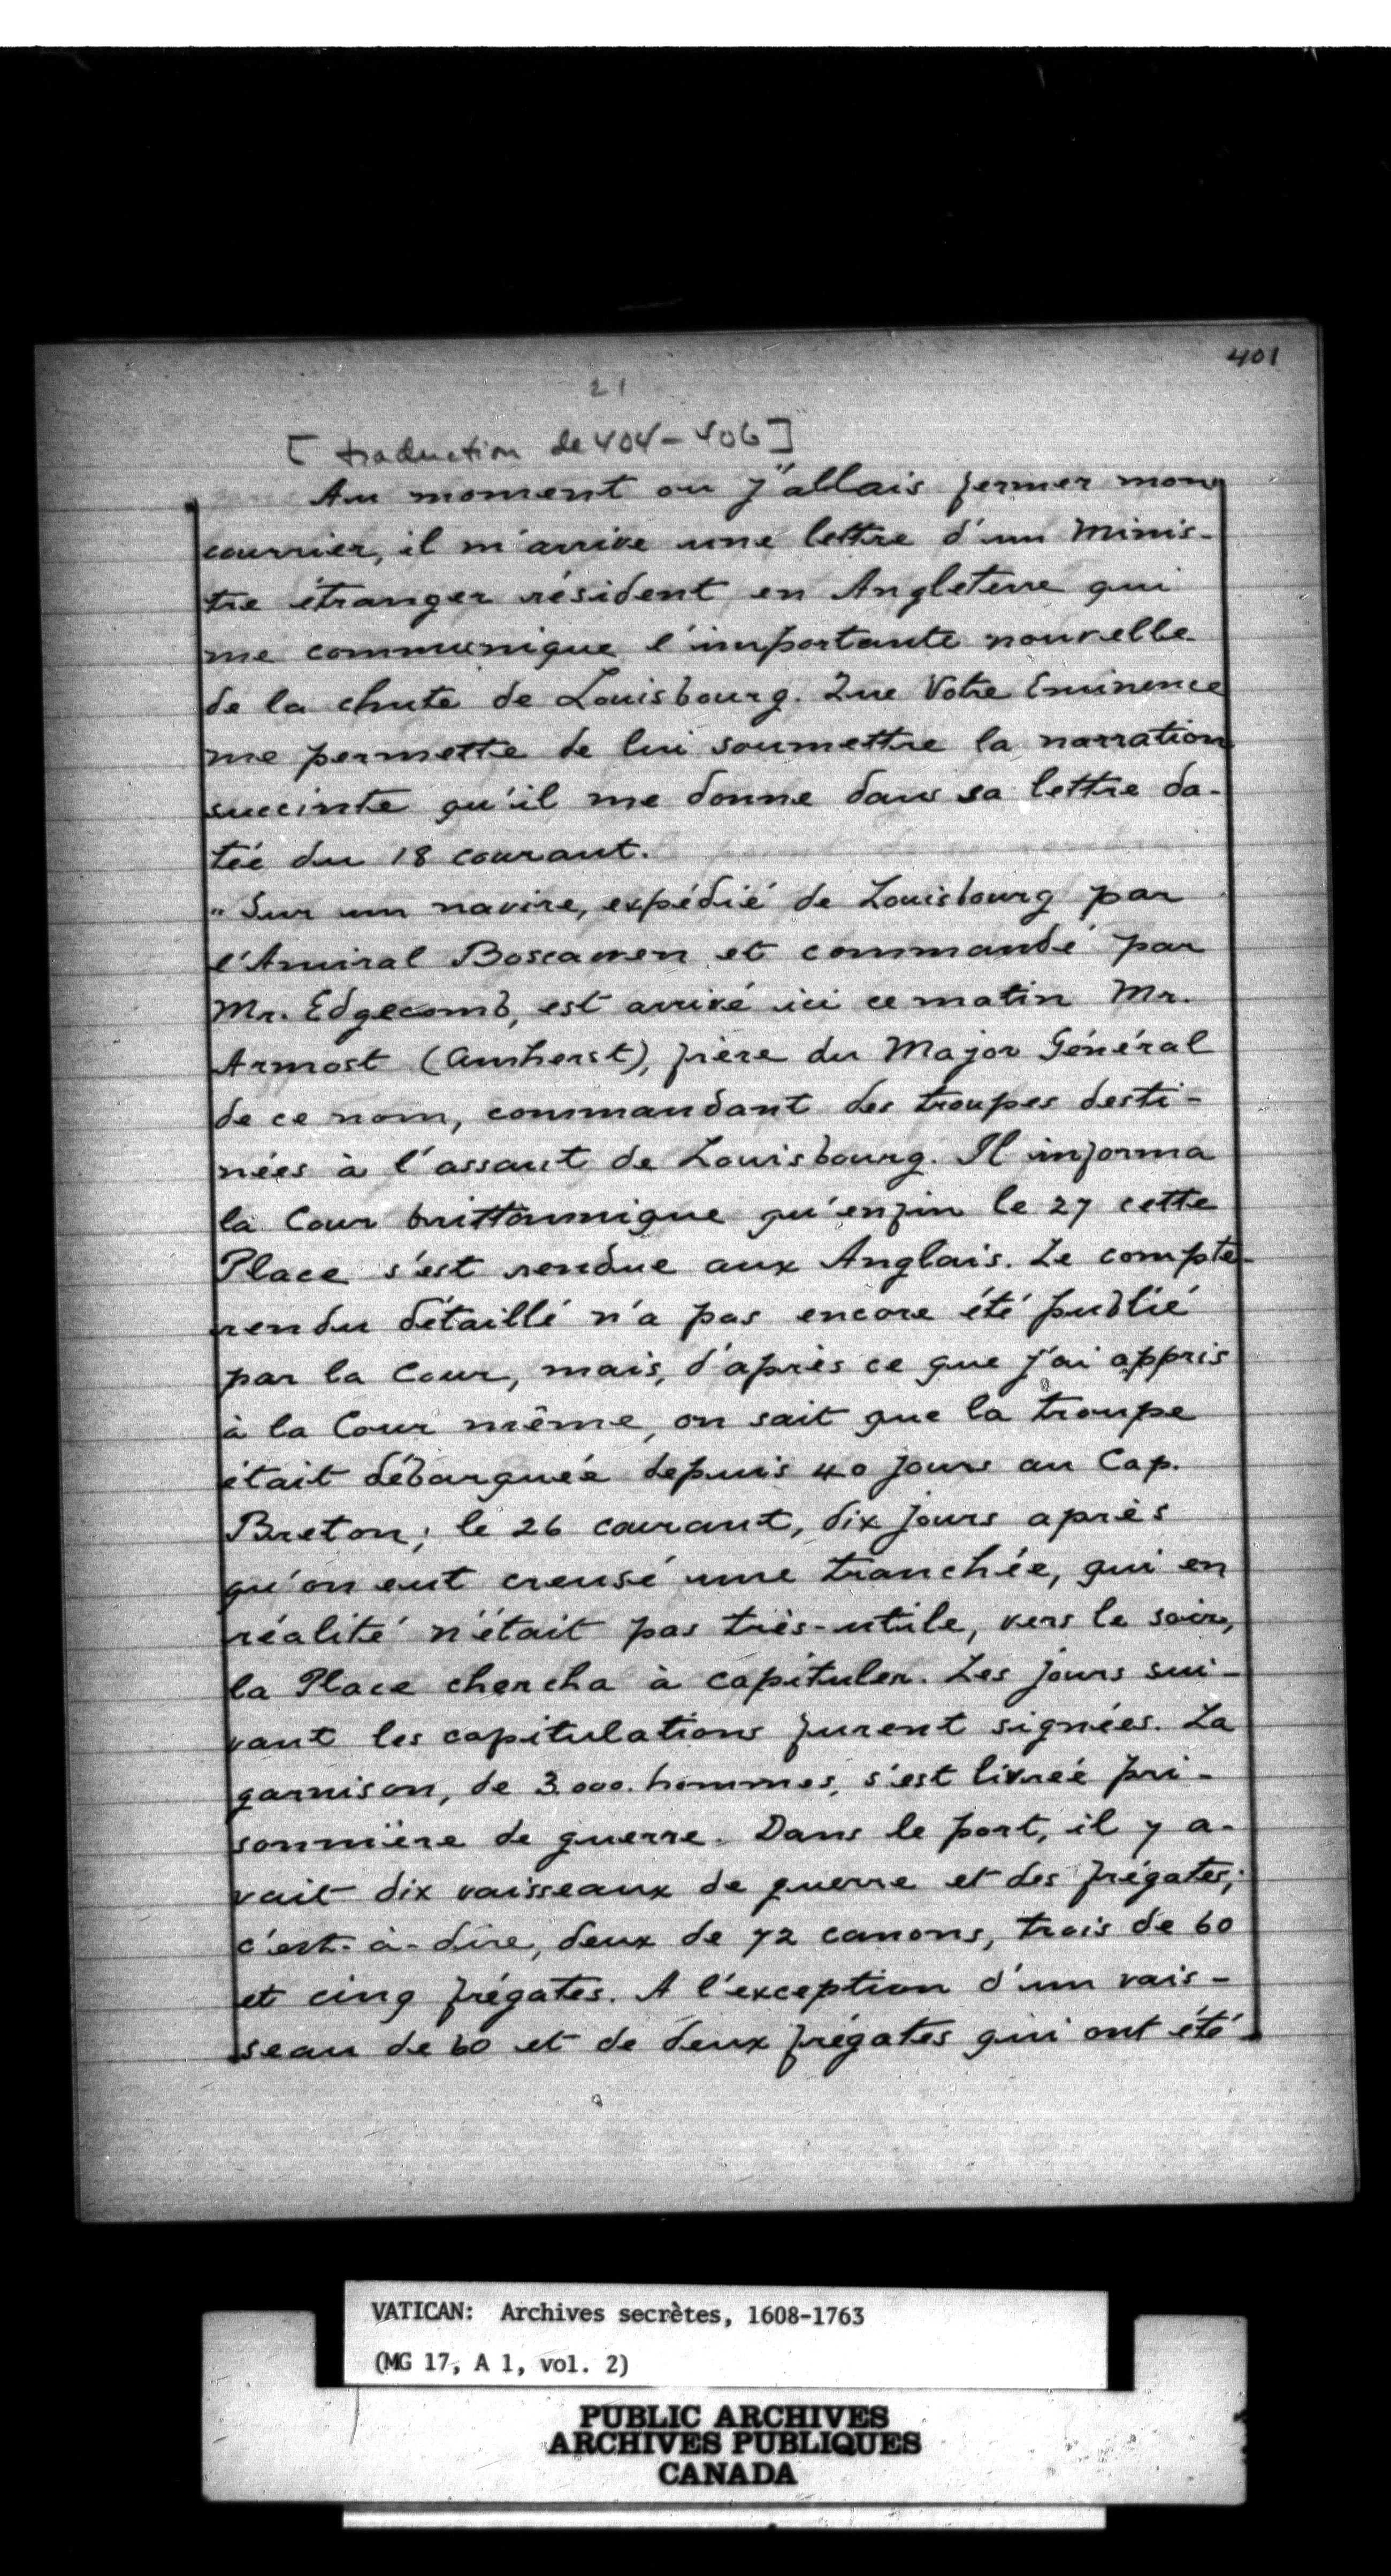 401
21
[traduction de 404-406]
Au moment ou j"allais fermer mon
courrier, il m'arrive une lettre d'un Minis-
tre étranger résident en Angleterre qui
me communique l'importante nouvelle
de la chute de Louisbourg. Que Votre Eminence
me permette de lui soumettre la narration
succinte qu'il me donne dans sa lettre da-
tée du 18 courant.
"Sur un navire, expédié de Louisbourg par
l'Amiral Boscawen et commandé par
Mr. Edgecomb, est arrivé ici ce matin Mr.
Armost (Amherst), frère du Major Général
de ce nom, commandant des troupes desti-
nées à l'assaut de Louisbourg. Il informa
la Cour brittannique qu'enfin le 27 cette
Place s'est rendue aux Anglais. Le compte-
rendu détaillé n'a pas encore été publié
par la Cour, mais, d'après ce que j'ai appris
à la Cour même, on sait que la troupe
était débarquée depuis 40 jours au Cap.
Breton; le 26 courant, dix jours après
qu'on eut creusé une tranchée, qui en
réalité n'était pas très-utile, vers le soir,
la Place chercha à capituler. Les jours sui-
vant les capitulations furent signées. La
garnison, de 3.000. hommes, s'est livrée pri-
sonnière de guerre. Dans le port, il y a-
vait dix vaisseaux de guerre et des frégates;
c'est-à-dire, deux de 72 canons, trois de 60
et cinq frégates. A l'exception d'un vais-
seau de 60 et de deux frégates qui ont été
VATICAN: Archives secrètes, 1608-1763
(MG 17, A 1, vol. 2)
PUBLIC ARCHIVES
ARCHIVES PUBLIQUES
CANADA